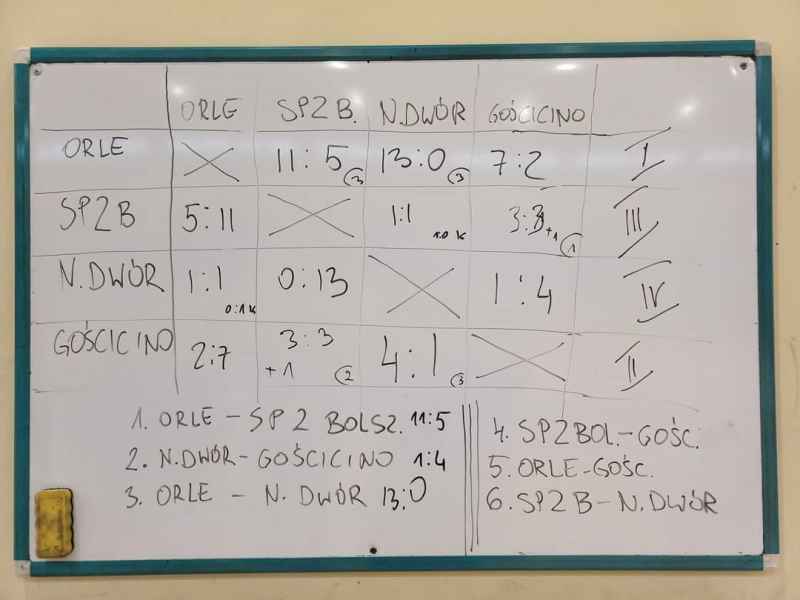 ORLE SP2 B. N.DWÓR GOŚCICINO
ORLE 11:5 3 13:0 3 7:2 I
SP2B 5:11 1:1 1:0 K 3:3 +1 1 III
N.DWÓR 1:1 0:1 K 0:13 1:4 IV
GOŚCICINO 2:7 3:3 +1 2 4:1 3 II
1. ORLE – SP2 BOLSZ. 11:5
2. N.DWÓR – GOŚCICINO 1:4
3. ORLE – N. DWÓR 13:0
4. SP2BOL. – GOŚC.
5. ORLE – GOŚC.
6. SP2B – N.DWÓR